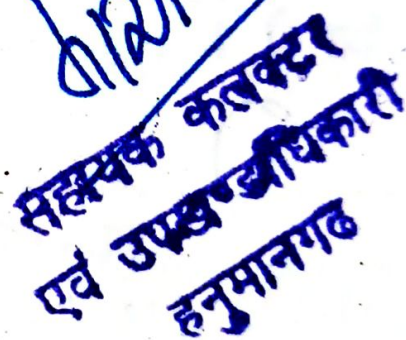 सहायक कलक्टर
एवं उपखण्ड अधिकारी
हनुमानगढ